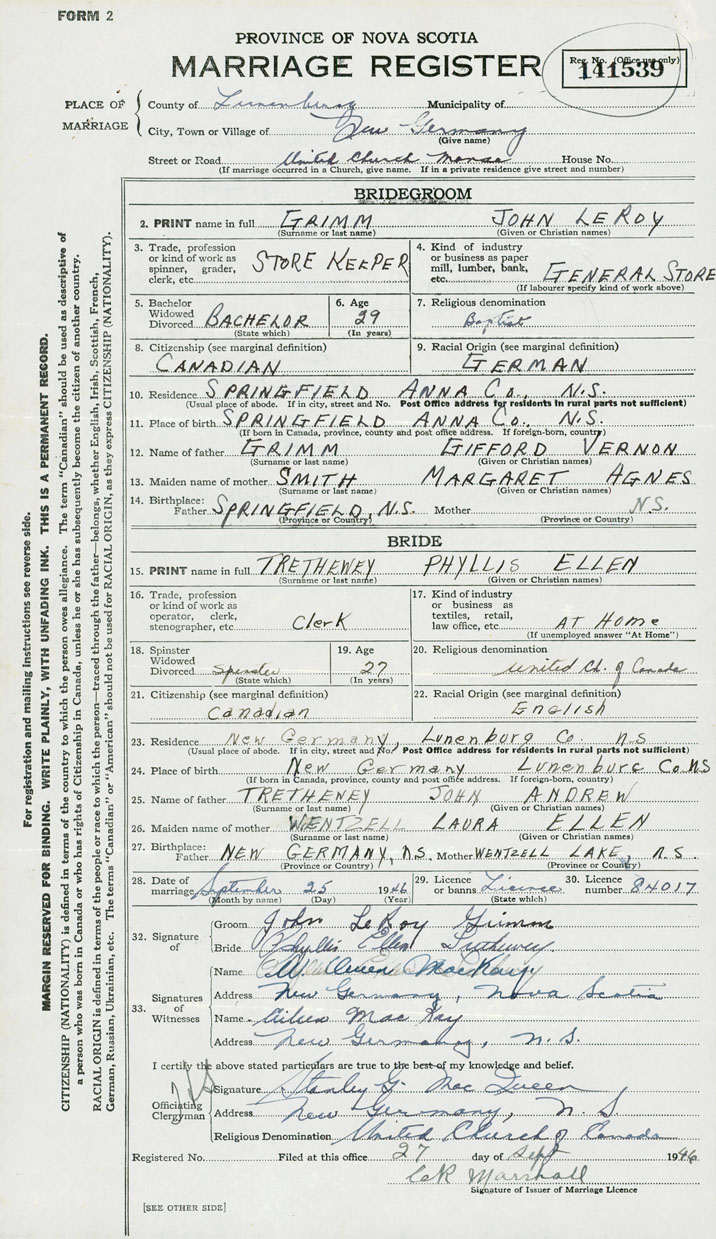 FORM 2
PROVINCE OF NOVA SCOTIA
MARRIAGE REGISTER
Reg. No. (Office use only)
141539
PLACE OF MARRIAGE
County of Lunenburg Municipality of
City, Town or Village of New Germany
(Give name)
Street or Road United Church Manse House No.
(If marriage occurred in a Church, give name. If in a private residence give street and number)
BRIDEGROOM
2. PRINT name in full GRIMM JOHN LEROY
(Surname or last name) (Given or Christian names)
3. Trade, profession or kind of work as spinner, grader, clerk, etc. STORE KEEPER
4. Kind of industry or business as paper mill, lumber, bank, etc. GENERAL STORE
(If labourer specify kind of work above)
5. Bachelor Widowed Divorced BACHELOR
(State which)
6. Age 29
(In years)
7. Religious denomination
Baptist
8. Citizenship (see marginal definition)
CANADIAN
9. Racial Origin (see marginal definition)
GERMAN
10. Residence SPRINGFIELD ANNA CO., N.S.
(Usual place of abode. If in city, street and No. Post Office address for residents in rural parts not sufficient)
11. Place of birth SPRINGFIELD ANNA CO. N.S.
(If born in Canada, province, county and post office address. If foreign-born, country)
12. Name of father GRIMM GIFFORD VERNON
(Surname or last name) (Given or Christian names)
13. Maiden name of mother SMITH MARGARET AGNES
(Surname or last name) (Given or Christian names)
14. Birthplace:
Father SPRINGFIELD, N.S. Mother N.S.
(Province or Country) (Province or Country)
BRIDE
15. PRINT name in full TRETHEWEY PHYLLIS ELLEN
(Surname or last name) (Given or Christian names)
16. Trade, profession or kind of work as operator, clerk, stenographer, etc. Clerk
17. Kind of industry or business as textiles, retail, law office, etc. AT Home
(If unemployed answer "At Home")
18. Spinster Widowed Divorced Spinster
(State which)
19. Age 27
(In years)
20. Religious denomination
United Ch. of Canada
21. Citizenship (see marginal definition)
Canadian
22. Racial Origin (see marginal definition)
English
23. Residence New Germany, Lunenburg Co. N.S
(Usual place of abode. If in city, street and No. Post Office address for residents in rural parts not sufficient)
24. Place of birth New Germany Lunenburg Co. NS
(If born in Canada, province, county and post office address. If foreign-born, country)
25. Name of father TRETHEWEY JOHN ANDREW
(Surname or last name) (Given or Christian names)
26. Maiden name of mother WENTZELL LAURA ELLEN
(Surname or last name) (Given or Christian names)
27. Birthplace:
Father NEW GERMANY, N.S. Mother WENTZELL LAKE N.S.
(Province or Country) (Province or Country)
28. Date of marriage September 25 1946
(Month by name) (Day) (Year)
29. Licence or banns Licence
(State which)
30. Licence number 84017
32. Signature of
Groom John LeRoy Grimm
Bride Phyllis Ellen Trethewey
33. Signatures of Witnesses
Name MacKay
Address New Germany, Nova Scotia
Name Aileen MacKay
Address New Germany, N.S.
I certify the above stated particulars are true to the best of my knowledge and belief.
Officiating Clergyman
Signature Stanley G. MacQueen
Address New Germany, N.S.
Religious Denomination United Church of Canada
Registered No. Filed at this office 27 day of Sept 1946
Marshall
Signature of Issuer of Marriage Licence
[SEE OTHER SIDE]
For registration and mailing instructions see reverse side.
MARGIN RESERVED FOR BINDING. WRITE PLAINLY, WITH UNFADING INK. THIS IS A PERMANENT RECORD.
CITIZENSHIP (NATIONALITY) is defined in terms of the country to which the person owes allegiance. The term "Canadian" should be used as descriptive of
a person who was born in Canada or who has rights of Citizenship in Canada, unless he or she has subsequently become the citizen of another country.
RACIAL ORIGIN is defined in terms of the people or race to which the person—traced through the father—belongs, whether English, Irish, Scottish, French,
German, Russian, Ukrainian, etc. The terms "Canadian" or "American" should not be used for RACIAL ORIGIN, as they express CITIZENSHIP (NATIONALITY).